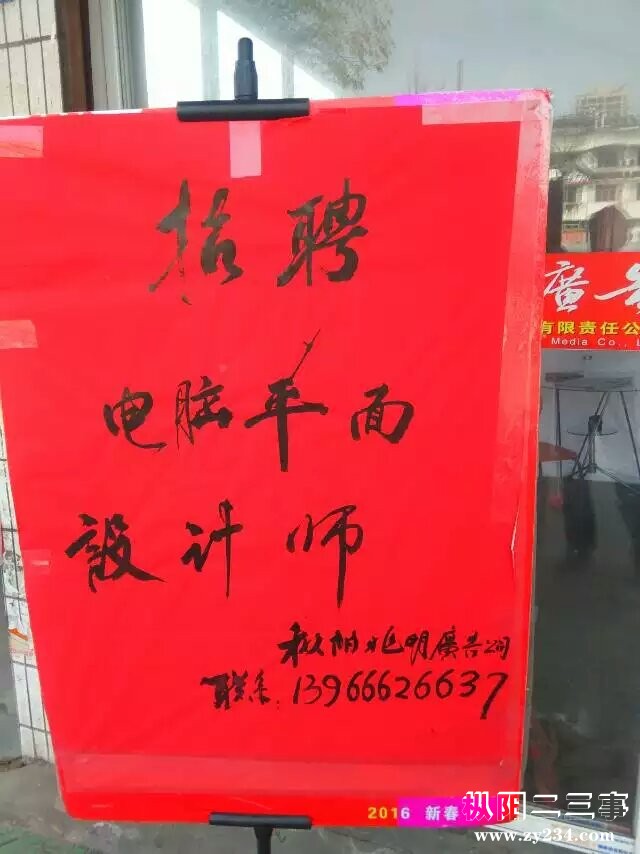 招聘
电脑平面
設计师
枞阳兆明廣告公司
联系:13966626637
廣告
有限责任公
Media Co., L
2016 新春
枞阳二三事
www.zy234.com